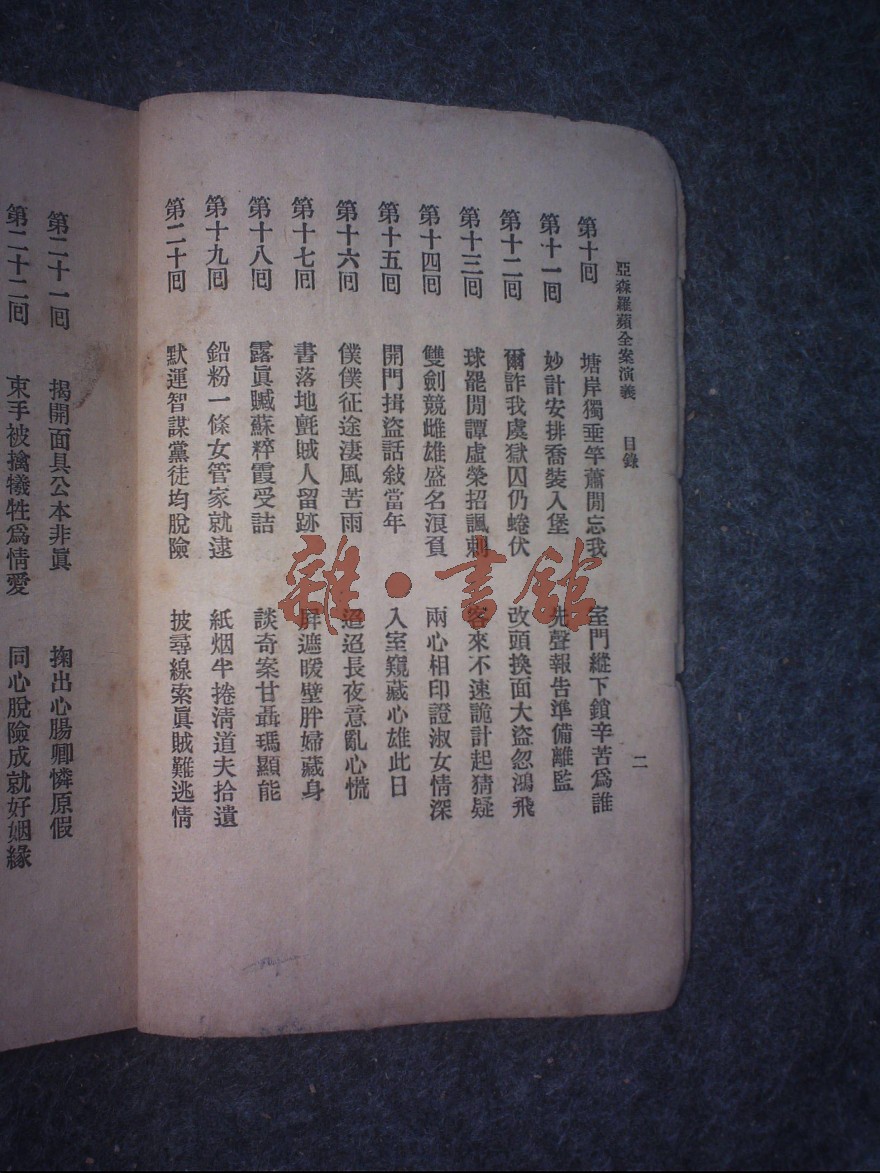 亞森羅蘋全案演義 目錄 二
第十回 塘岸獨垂竿蕭閒忘我 室門縱下鎖辛苦爲誰
第十一回 妙計安排喬裝入堡 先聲報告準備離監
第十二回 爾詐我虞獄囚仍蜷伏 改頭換面大盜忽鴻飛
第十三回 球罷閒譚虛榮招諷刺 客來不速詭計起猜疑
第十四回 雙劍競雌雄盛名滾負 兩心相印證淑女情深
第十五回 開門揖盜話敍當年 入室窺藏心雄此日
第十六回 僕僕征途淒風苦雨 迢迢長夜意亂心慌
第十七回 書落地氈賊人留跡 屏遮暖壁胖婦藏身
第十八回 露眞贓蘇粹霞受詰 談奇案甘聶瑪顯能
第十九回 鉛粉一條女管家就逮 紙烟半捲淸道夫拾遺
第二十回 默運智謀黨徒均脫險 披尋線索眞賊難逃情
第二十一回 揭開面具公本非眞 掬出心腸卿憐原假
第二十二回 束手被擒犧牲爲情愛 同心脫險成就好姻緣
雜·書館